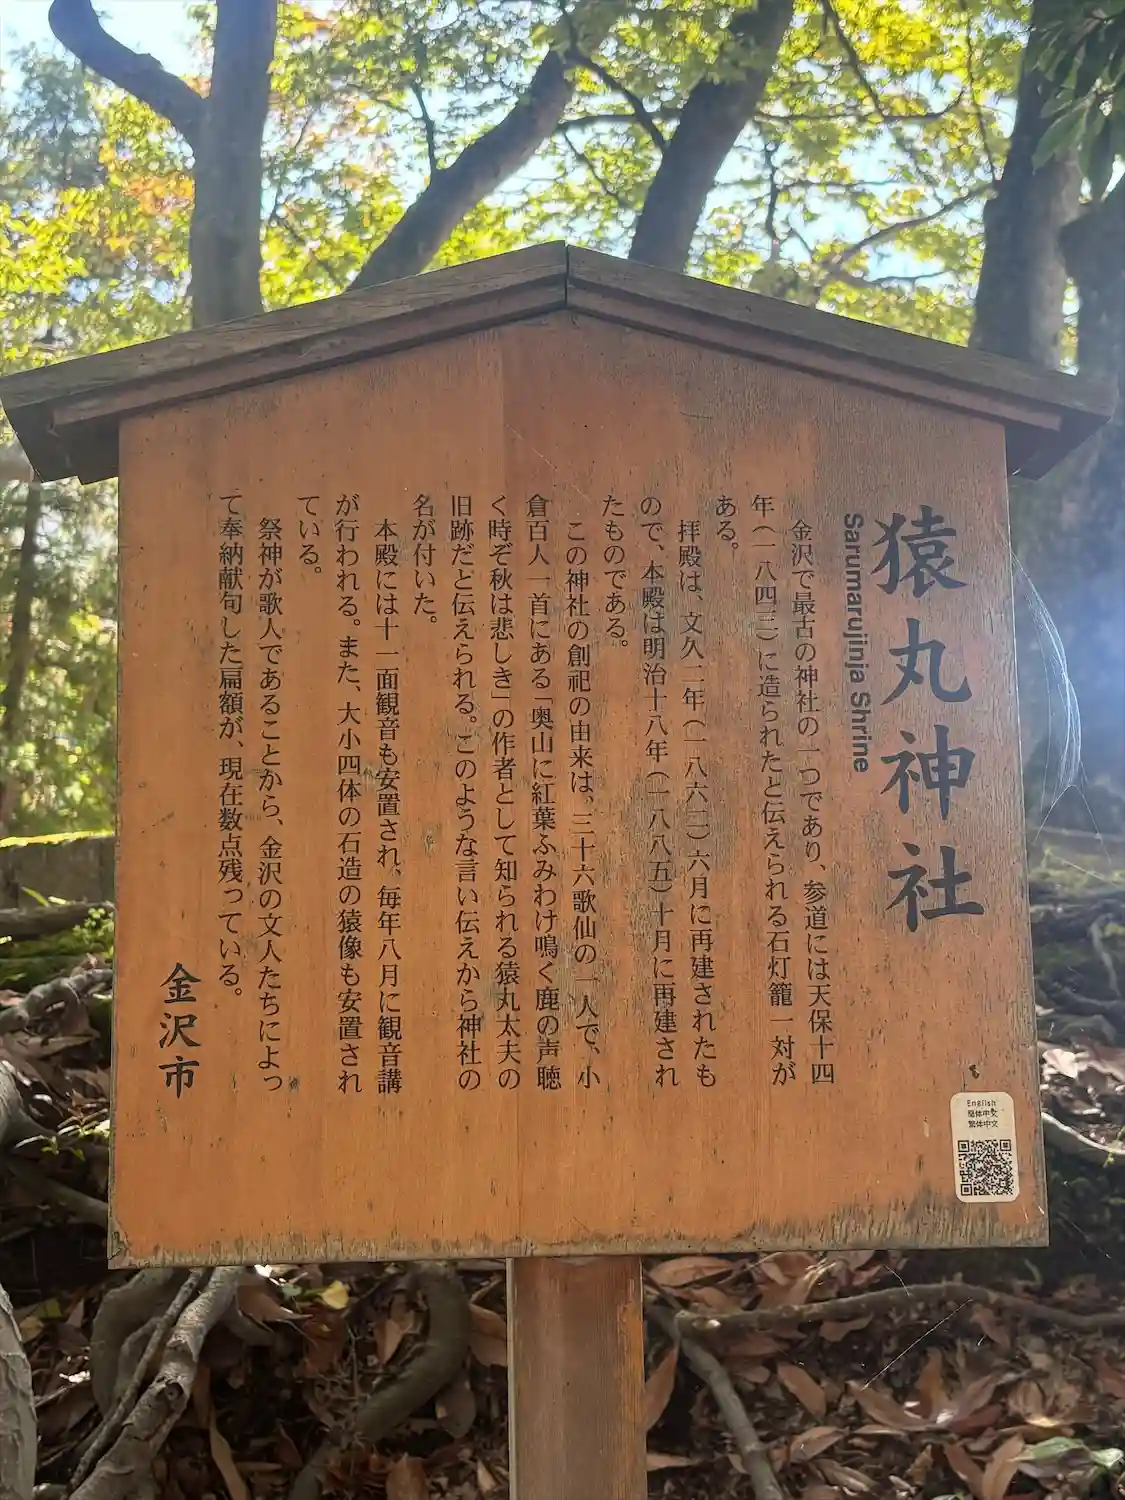 猿丸神社
Sarumarujinja Shrine
金沢で最古の神社の一つであり、参道には天保十四
年（一八四三）に造られたと伝えられる石灯籠一対が
ある。
拝殿は、文久二年（一八六二）六月に再建されたも
ので、本殿は明治十八年（一八八五）十月に再建され
たものである。
この神社の創祀の由来は、三十六歌仙の一人で、小
倉百人一首にある「奥山に紅葉ふみわけ鳴く鹿の声聴
く時ぞ秋は悲しき」の作者として知られる猿丸太夫の
旧跡だと伝えられる。このような言い伝えから神社の
名が付いた。
本殿には十一面観音も安置され、毎年八月に観音講
が行われる。また、大小四体の石造の猿像も安置され
ている。
祭神が歌人であることから、金沢の文人たちによっ
て奉納献句した扁額が、現在数点残っている。
金沢市
English
簡体中文
繁体中文